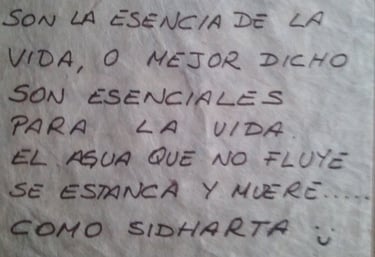 SON LA ESENCIA DE LA
VIDA, O MEJOR DICHO
SON ESENCIALES
PARA LA VIDA.
EL AGUA QUE NO FLUYE
SE ESTANCA Y MUERE.....
COMO SIDHARTA :)